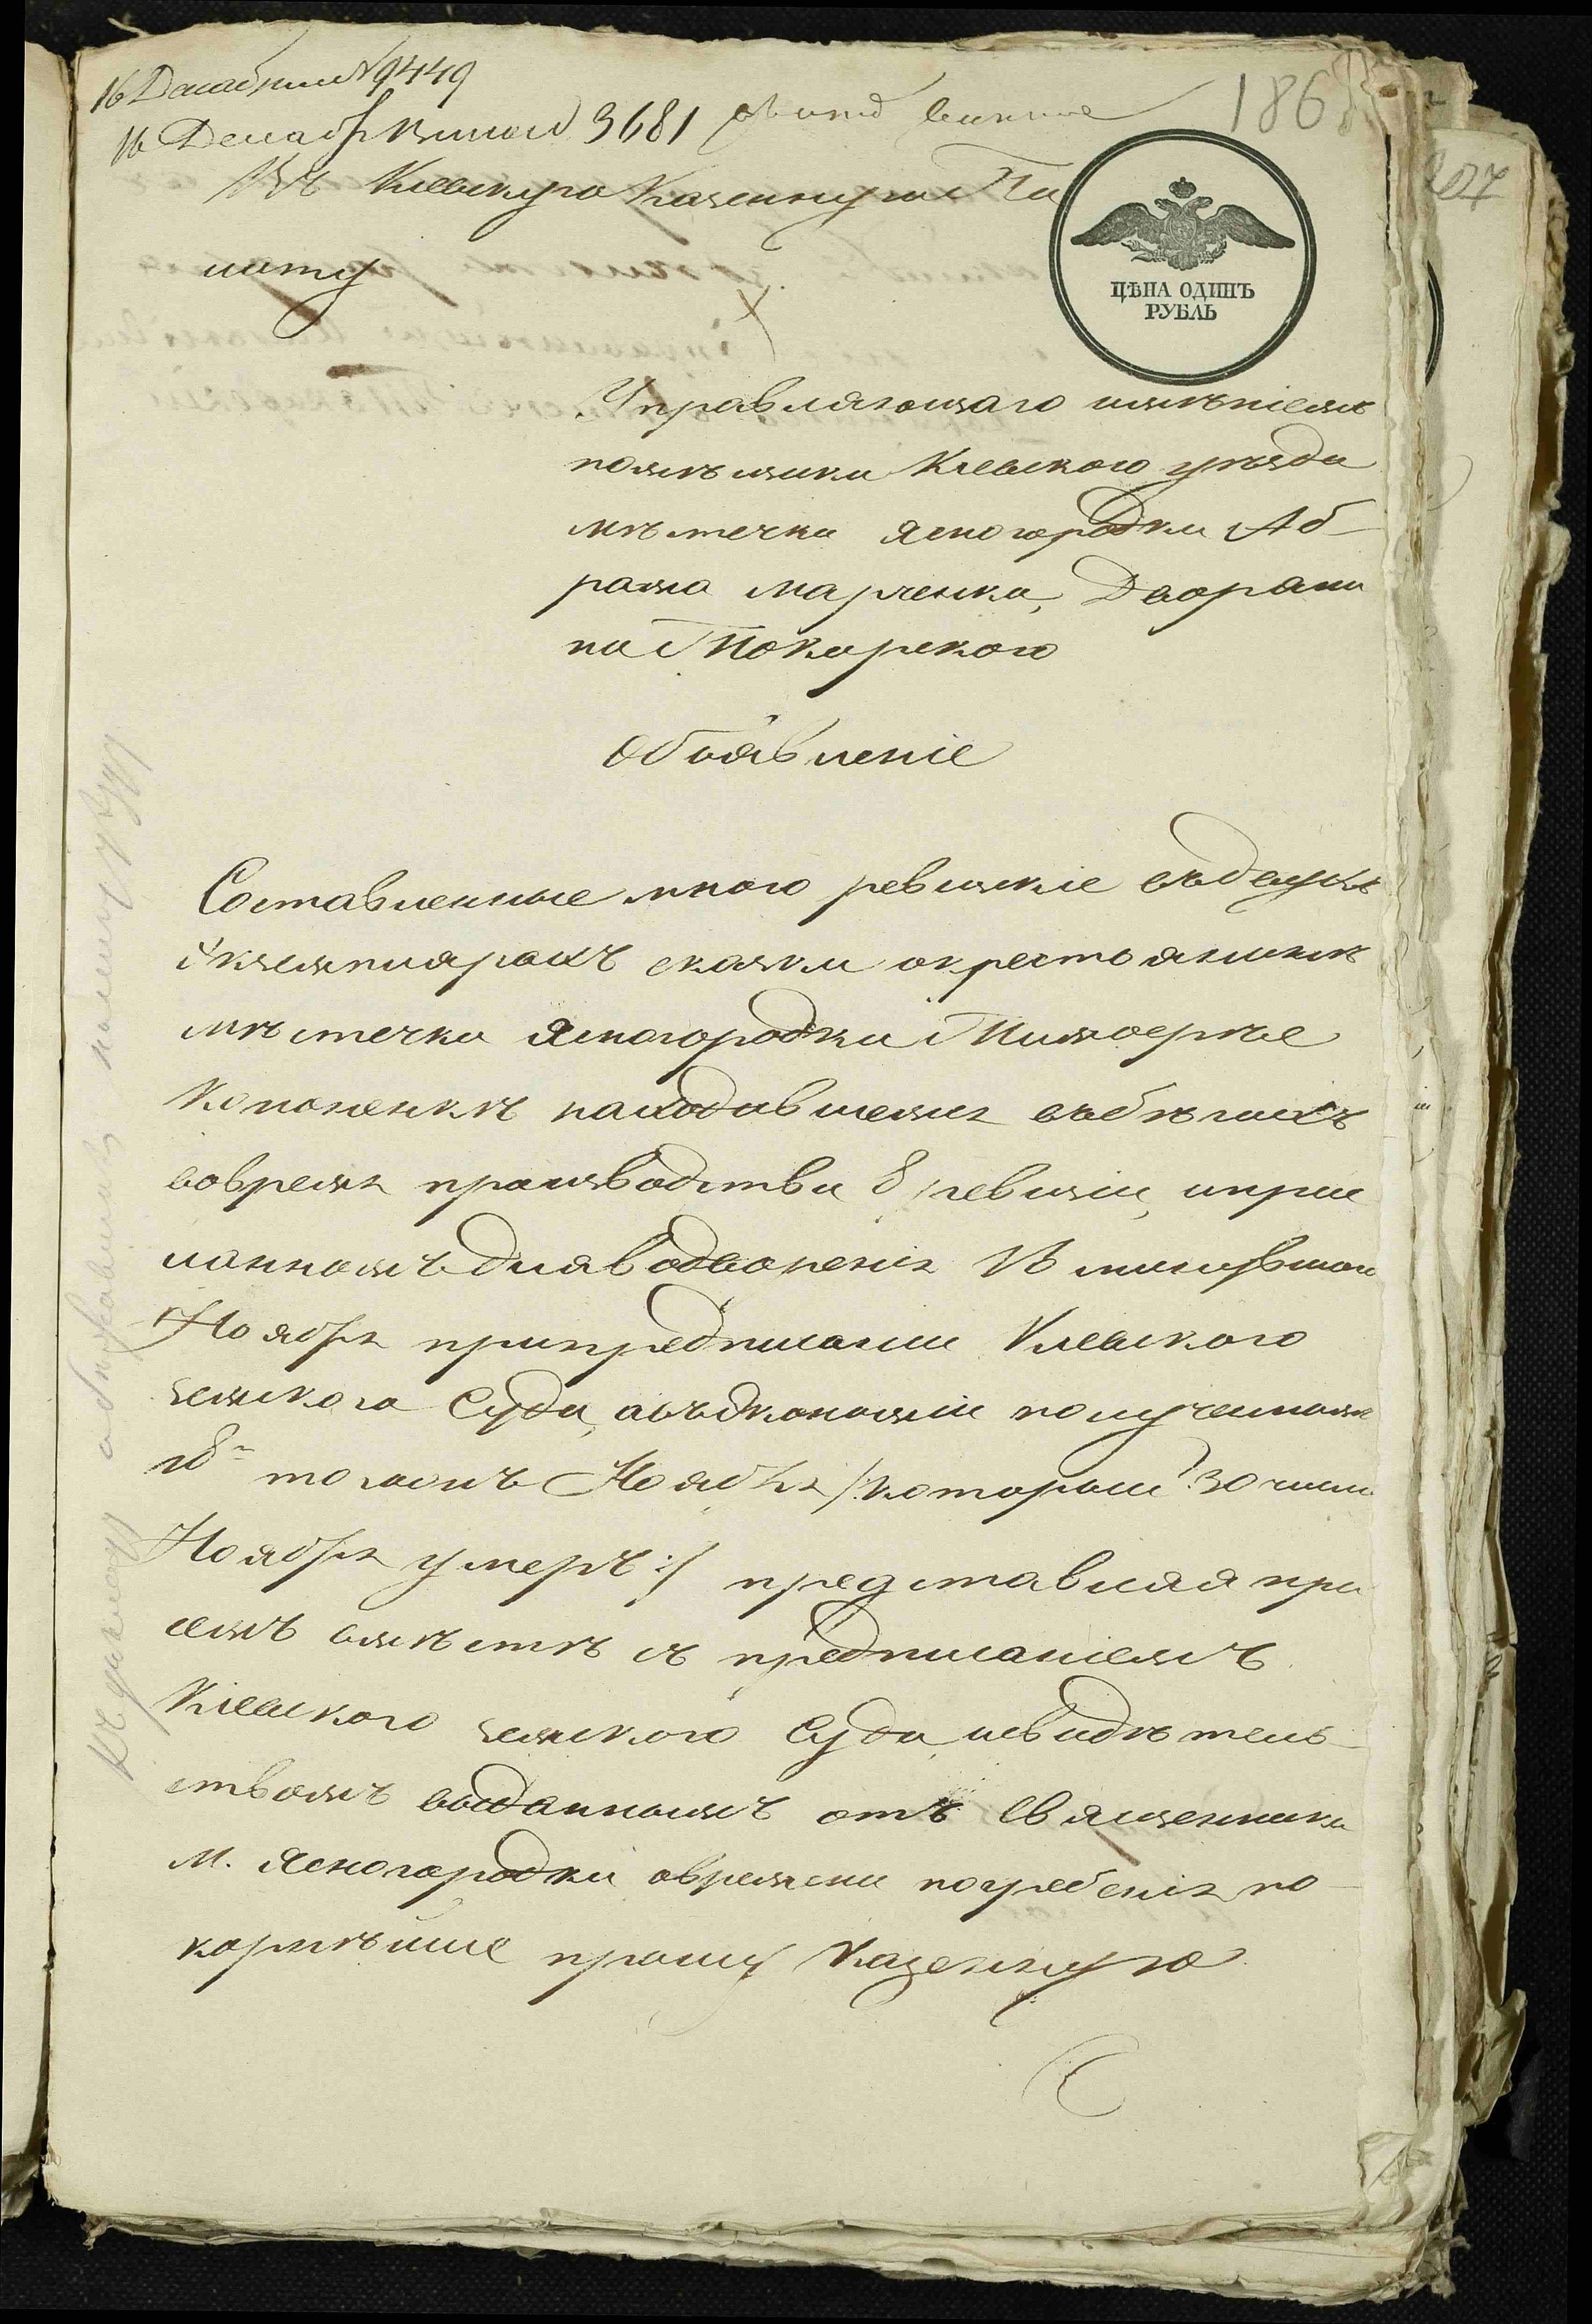 16 Декабря № 9449
16 Декабр 3681
186
Въ Кіевскую Казенную Па
лату
ЦѢНА ОДИНЪ
РУБЛЬ
207
Управляющаго имѣніемъ
помѣщика Кіевского уѣзда
мѣстечка Ясногородки Аб-
рама Марченка, Дворяни
на Токарского
Объявленіе
Составленные мною ревизкіе въ двухъ
экземплярахъ сказки о крестьянинѣ
мѣстечка Ясногородки Тимофеѣ
Кононенкѣ находившемся въ бѣгахъ
вовремя производства 8 ревизіи, и прис
ланномъ для водворенія В минувшом
Ноябрѣ при предписаніи Кіевского
земского Суда, въ экономіи полученномъ
18го тогожъ Ноября /: который 30 числа
Ноября умеръ :/ представляя при
семъ вмѣстѣ съ предписаніемъ
Кіевского земского Суда, и свидѣтель-
ствомъ выданнымъ отъ Священника
М. Ясногородки о времени погребенія по-
корнѣйше прошу Казенную